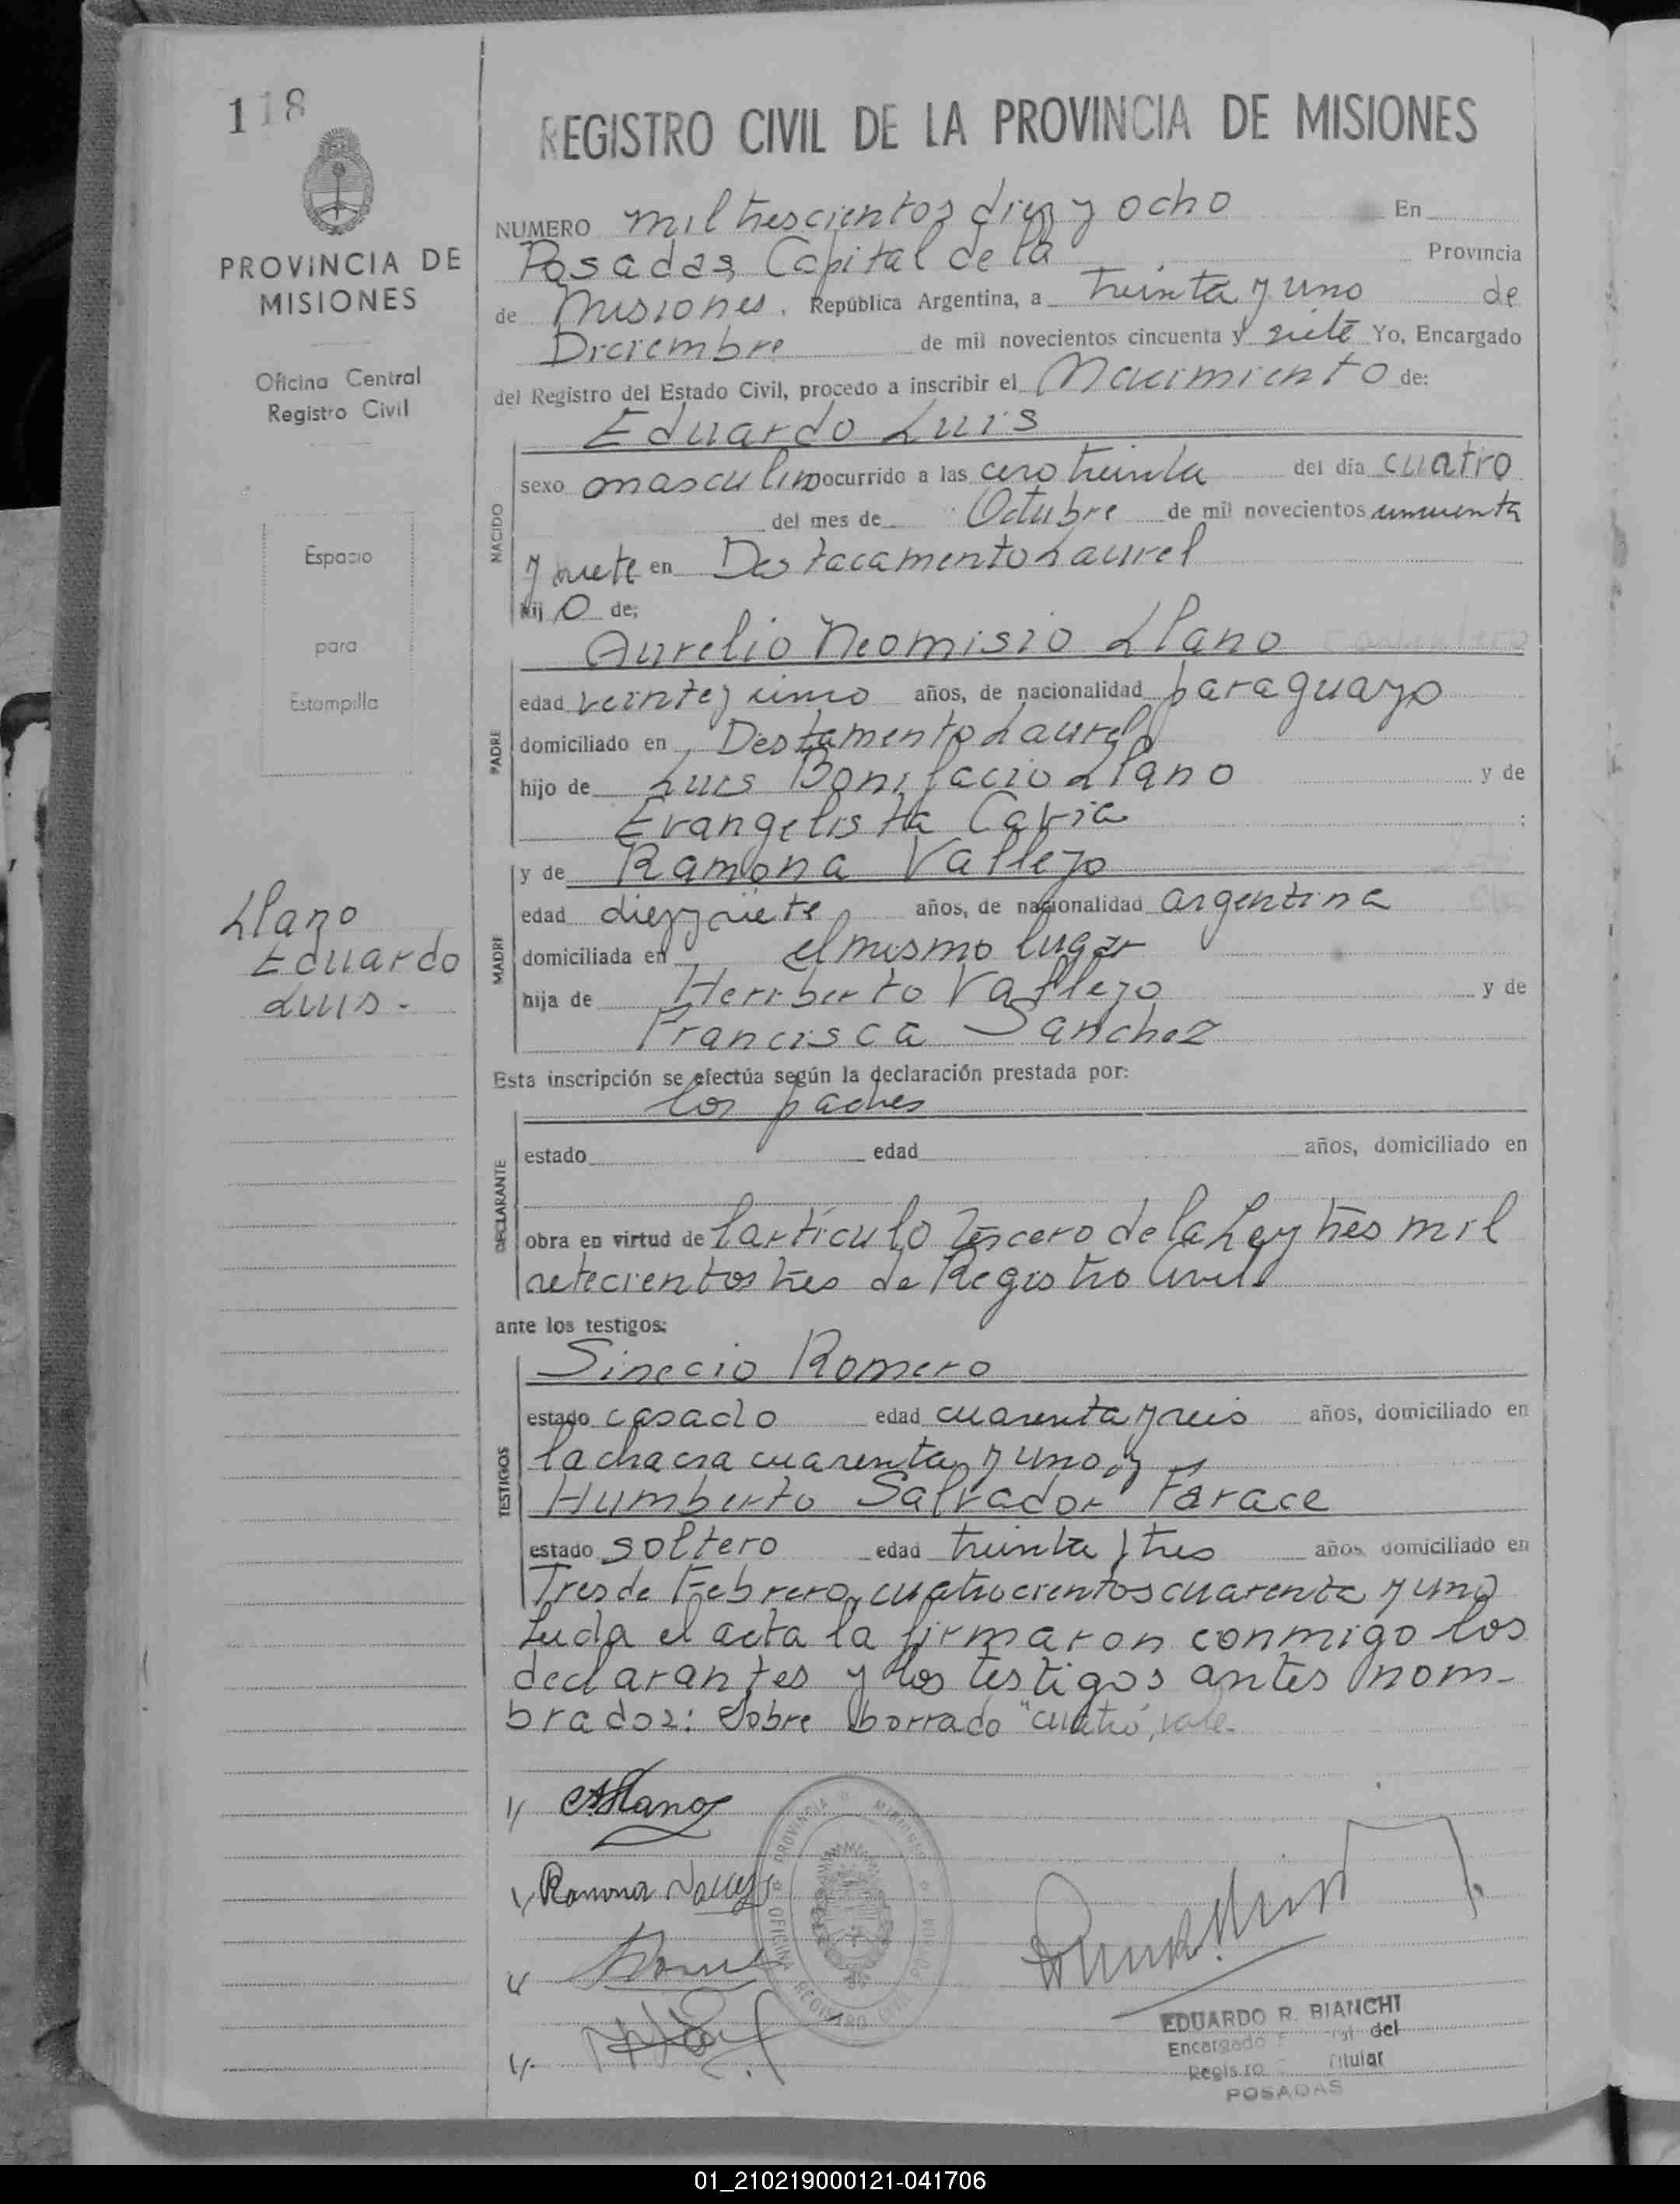 118
REGISTRO CIVIL DE LA PROVINCIA DE MISIONES
PROVINCIA DE
MISIONES
Oficina Central
Registro Civil
Espacio
para
Estampilla
Llano
Eduardo
Luis.-
NUMERO mil trescientos diez y ocho En
Posadas, Capital de la Provincia
de Misiones, República Argentina, a treinta y uno de
Diciembre de mil novecientos cincuenta y siete Yo, Encargado
del Registro del Estado Civil, procedo a inscribir el Nacimiento de:
Eduardo Luis
NACIDO
sexo masculino ocurrido a las cero treinta del día cuatro
del mes de Octubre de mil novecientos cincuenta
y siete en Destacamento Laurel
hij o de;
Aurelio Neomisio Llano
PADRE
edad veinte y cinco años, de nacionalidad paraguayo
domiciliado en Destamento Laurel
hijo de Luis Bonifacio Llano y de
Evangelista :
y de Ramona Vallejo
MADRE
edad diez y siete años, de nacionalidad argentina
domiciliada en el mismo lugar
hija de Heriberto Vallejo y de
Francisca Sanchez
Esta inscripción se efectúa según la declaración prestada por:
los padres
DECLARANTE
estado edad años, domiciliado en
obra en virtud de l artículo tercero de la Ley tres mil
setecientos tres de Registro Civil
ante los testigos:
Sinecio Romero
TESTIGOS
estado casado edad cuarenta y seis años, domiciliado en
la chacra cuarenta y uno, y
Humberto Salvador Farace
estado soltero edad treinta y tres años domiciliado en
Tres de Febrero, cuatrocientos cuarenta y uno
Leida el acta la firmaron conmigo los
declarantes y los testigos antes nom-
brados: Sobre borrado "cuatro", vale.-
ALlano
Ramona Vallejo
PROVINCIA DE MISIONES
OFICINA REGISTRO CIVIL POSADAS
EDUARDO R. BIANCHI
Encargado del
Registro Titular
POSADAS
01_210219000121-041706